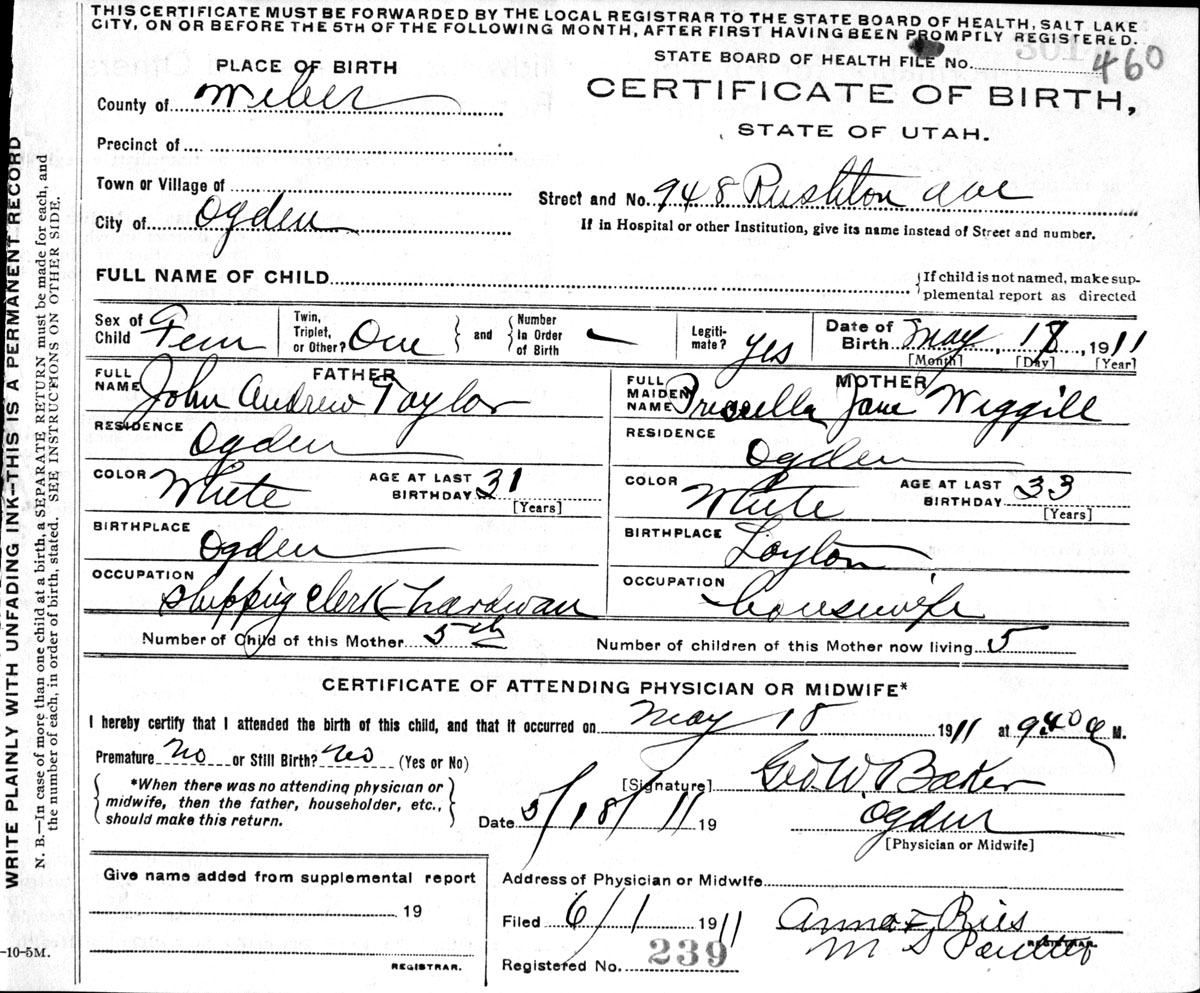 THIS CERTIFICATE MUST BE FORWARDED BY THE LOCAL REGISTRAR TO THE STATE BOARD OF HEALTH, SALT LAKE
CITY, ON OR BEFORE THE 5TH OF THE FOLLOWING MONTH, AFTER FIRST HAVING BEEN PROMPTLY REGISTERED.
PLACE OF BIRTH
STATE BOARD OF HEALTH FILE No. 460
County of Weber
CERTIFICATE OF BIRTH,
Precinct of
STATE OF UTAH.
Town or Village of
Street and No. 948 Rushton Ave
City of Ogden
If in Hospital or other Institution, give its name instead of Street and number.
FULL NAME OF CHILD
If child is not named, make sup-
plemental report as directed
Sex of Child Fem
Twin, Triplet, or Other? One
and
Number In Order of Birth —
Legiti-mate? yes
Date of Birth May 18, 1911
[Month] [Day] [Year]
FATHER
FULL NAME John Andrew Taylor
RESIDENCE Ogden
COLOR White
AGE AT LAST BIRTHDAY 31
[Years]
BIRTHPLACE
Ogden
OCCUPATION
Shipping Clerk - hardware
MOTHER
FULL MAIDEN NAME Priscella Jane Wiggill
RESIDENCE
Ogden
COLOR White
AGE AT LAST BIRTHDAY 33
[Years]
BIRTHPLACE Layton
OCCUPATION
housewife
Number of Child of this Mother 5th
Number of children of this Mother now living 5
CERTIFICATE OF ATTENDING PHYSICIAN OR MIDWIFE*
I hereby certify that I attended the birth of this child, and that it occurred on May 18 1911 at 9:40 a M.
Premature No or Still Birth? No (Yes or No)
*When there was no attending physician or
midwife, then the father, householder, etc.,
should make this return.
[Signature] Geo. W. Baker
Date 5/18/11 19
Ogden
[Physician or Midwife]
Give name added from supplemental report
19
REGISTRAR.
Address of Physician or Midwife
Filed 6/1 1911
Anna F Ries
M S
REGISTRAR.
Registered No. 239
-10-5M.
WRITE PLAINLY WITH UNFADING INK—THIS IS A PERMANENT RECORD
N. B.—In case of more than one child at a birth, a SEPARATE RETURN must be made for each, and
the number of each, in order of birth, stated. SEE INSTRUCTIONS ON OTHER SIDE.